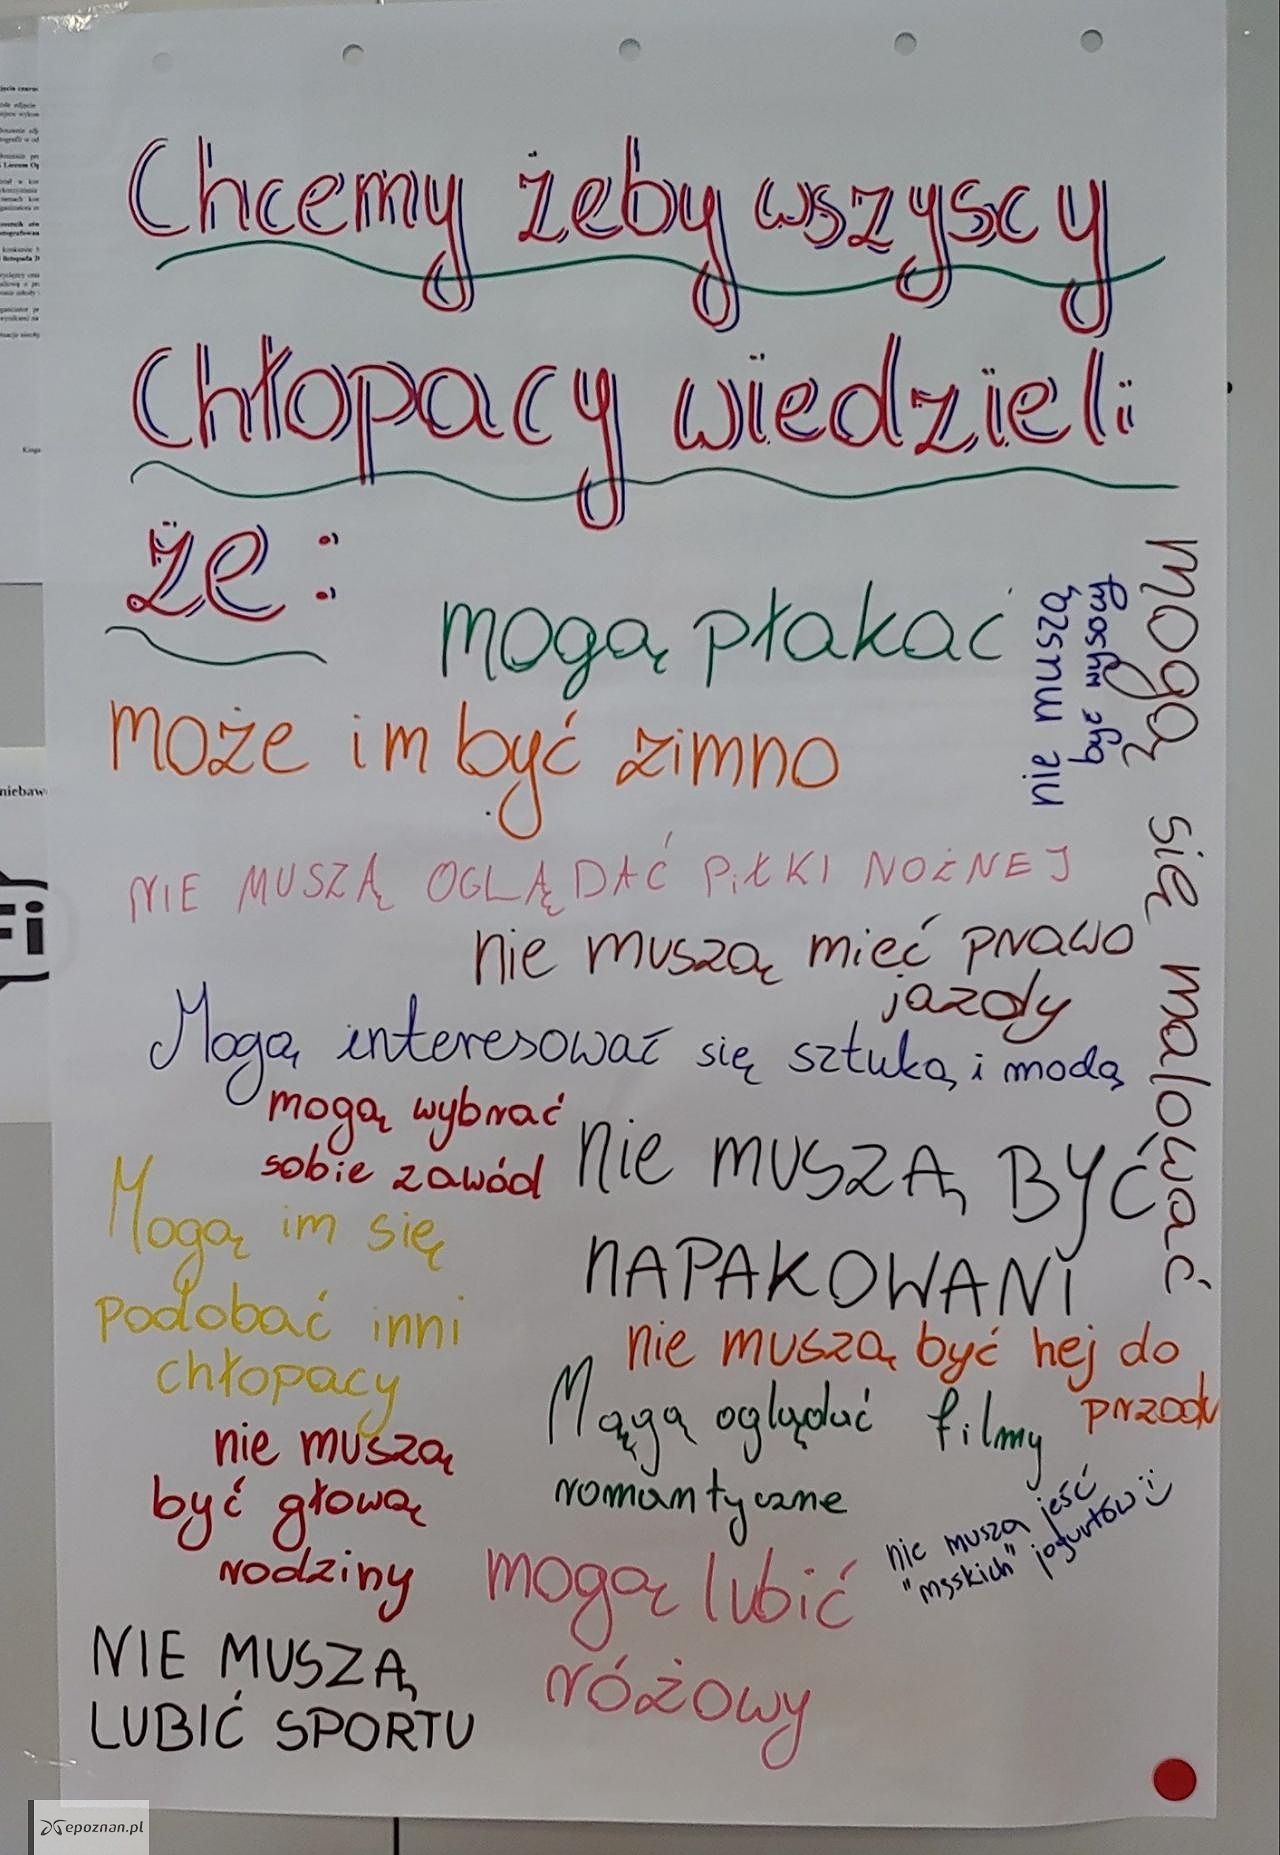 Chcemy żeby wszyscy
Chłopacy wiedzieli
że:
mogą płakać
nie muszą
być wysocy
mogą się malować
może im być zimno
NIE MUSZĄ OGLĄDAĆ PIŁKI NOŻNEJ
nie muszą mięć prawo
jazdy
Mogą interesować się sztuką i modą
mogą wybrać
sobie zawód
nie MUSZĄ BYĆ
NAPAKOWANI
Mogą im się
podobać inni
chłopacy
nie muszą być hej do
przodu
Mągą oglądać filmy
romantyczne
nie muszą
być głową
rodziny
nie muszą jeść
"męskich" jogurtów :)
mogą lubić
różowy
NIE MUSZĄ
LUBIĆ SPORTU
niebaw
Fi
epoznan.pl